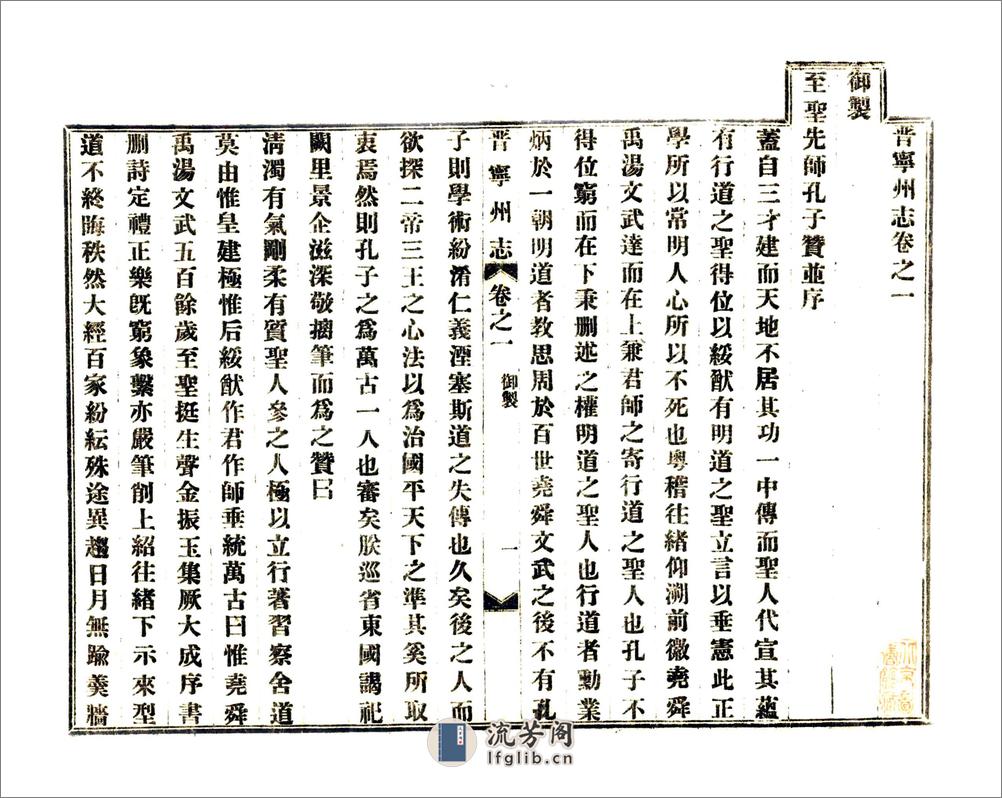 晋寧州志卷之一
御製
至聖先師孔子贊並序
蓋自三才建而天地不居其功一中傳而聖人代宣其蘊
有行道之聖得位以綏猷有明道之聖立言以垂憲此正
學所以常明人心所以不死也粵稽往緒仰溯前徽堯舜
禹湯文武達而在上兼君師之寄行道之聖人也孔子不
得位窮而在下秉刪述之權明道之聖人也行道者勳業
炳於一朝明道者教思周於百世堯舜文武之後不有孔
晋寧州志 卷之一 御製 一
子則學術紛淆仁義湮塞斯道之失傳也久矣後之人而
欲探二帝三王之心法以為治國平天下之準其奚所取
衷焉然則孔子之為萬古一人也審矣朕巡省東國謁祀
闕里景企滋深敬摛筆而為之贊曰
清濁有氣剛柔有質聖人參之人極以立行著習察舍道
莫由惟皇建極惟后綏猷作君作師垂統萬古曰惟堯舜
禹湯文武五百餘歲至聖挺生聲金振玉集厥大成序書
刪詩定禮正樂旣窮象繫亦嚴筆削上紹往緒下示來型
道不終晦秩然大經百家紛紜殊途異趨日月無踰羹牆
流芳阁
lfglib.cn